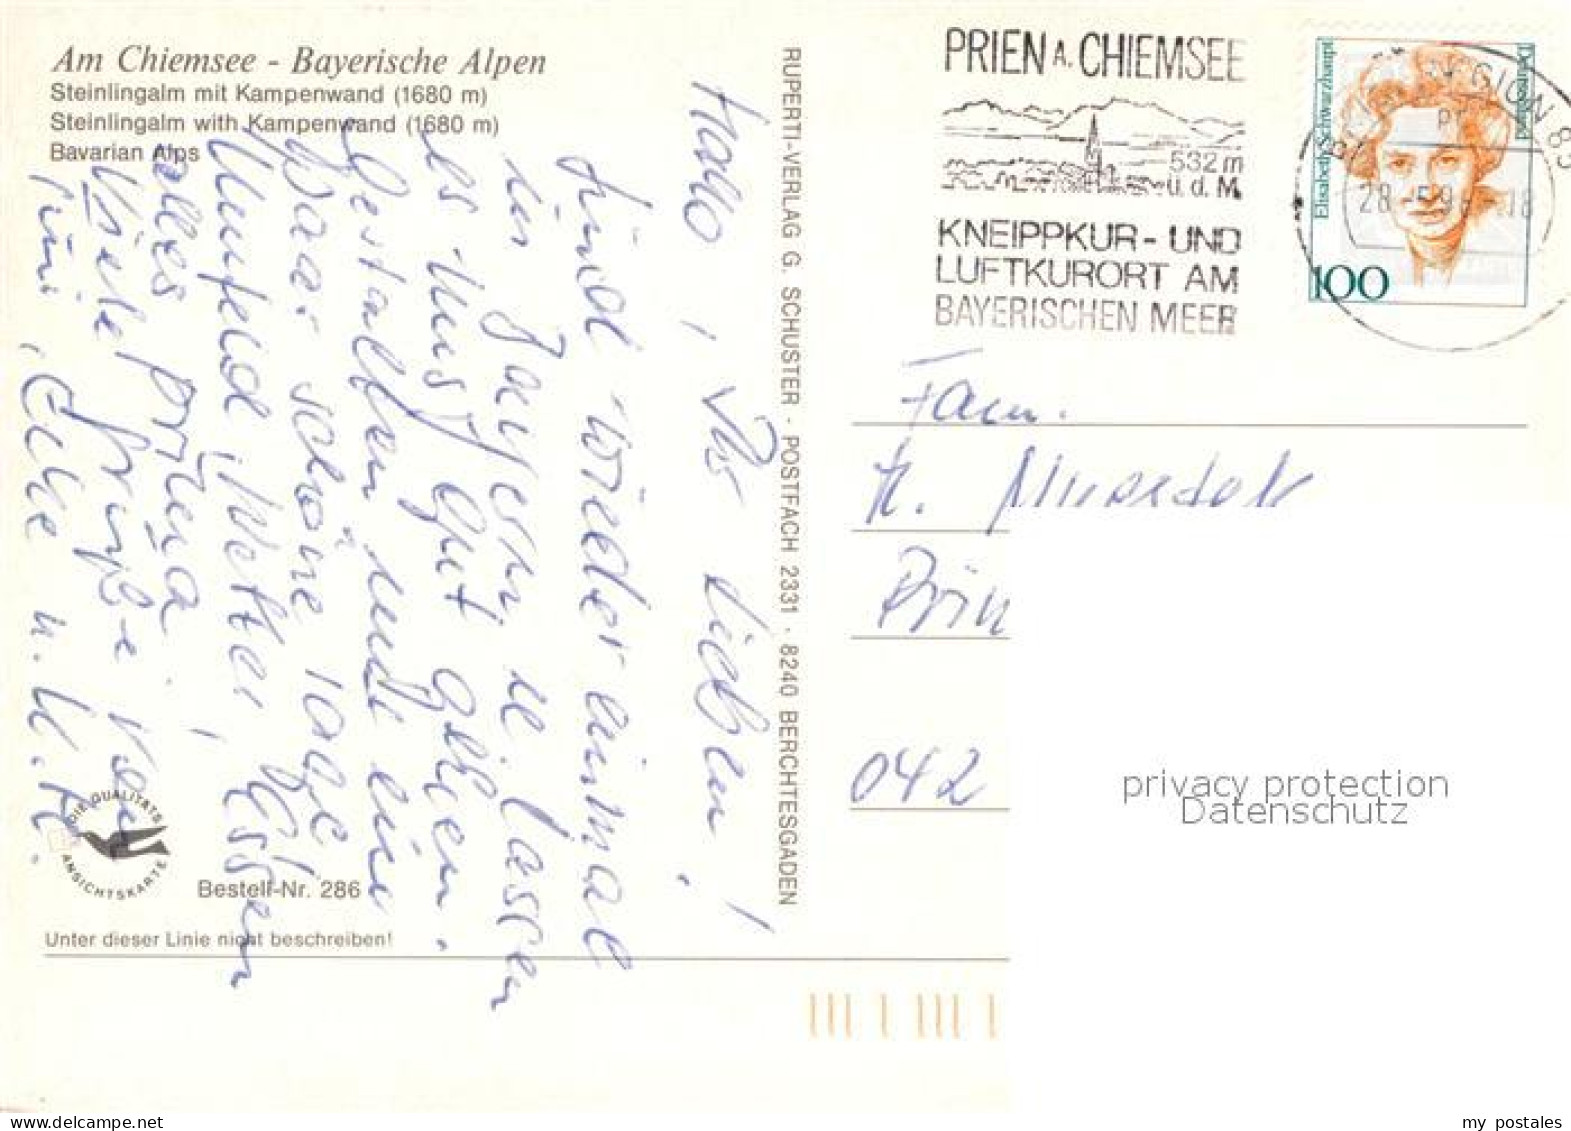 Am Chiemsee - Bayerische Alpen
Steinlingalm mit Kampenwand (1680 m)
Steinlingalm with Kampenwand (1680 m)
Bavarian Alps
Hallo, Ihr Lieben!
Sind wieder einmal
in Bayern u. lassen
es uns gut gehen.
Gestalten uns ein
paar schöne Tage!
Umfeld, Wetter, Essen
alles prima!
Viele Grüße von
Eure u. K.
DIE QUALITÄTS ANSICHTSKARTE
Bestell-Nr. 286
Unter dieser Linie nicht beschreiben!
RUPERTI-VERLAG G. SCHUSTER · POSTFACH 2331 · 8240 BERCHTESGADEN
PRIEN A. CHIEMSEE
532 m
ü. d. M.
KNEIPPKUR- UND
LUFTKURORT AM
BAYERISCHEN MEER
Elisabeth Schwarzhaupt
Deutschland
100
83
28 -5.9 -18
Fam.
042
privacy protection
Datenschutz
my postales